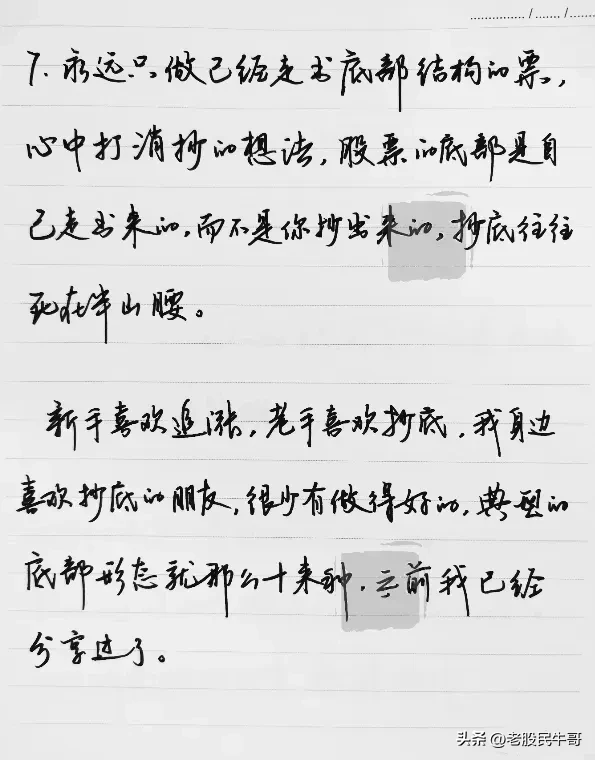 7. 永远只做已经走出底部结构的票,
心中打消抄的想法, 股票的底部是自
己走出来的, 而不是你抄出来的, 抄底往往
死在半山腰。
新手喜欢追涨, 老手喜欢抄底, 我身边
喜欢抄底的朋友, 很少有做得好的, 典型的
底部形态就那么十来种, 之前我已经
分享过了。
头条 @老股民牛哥